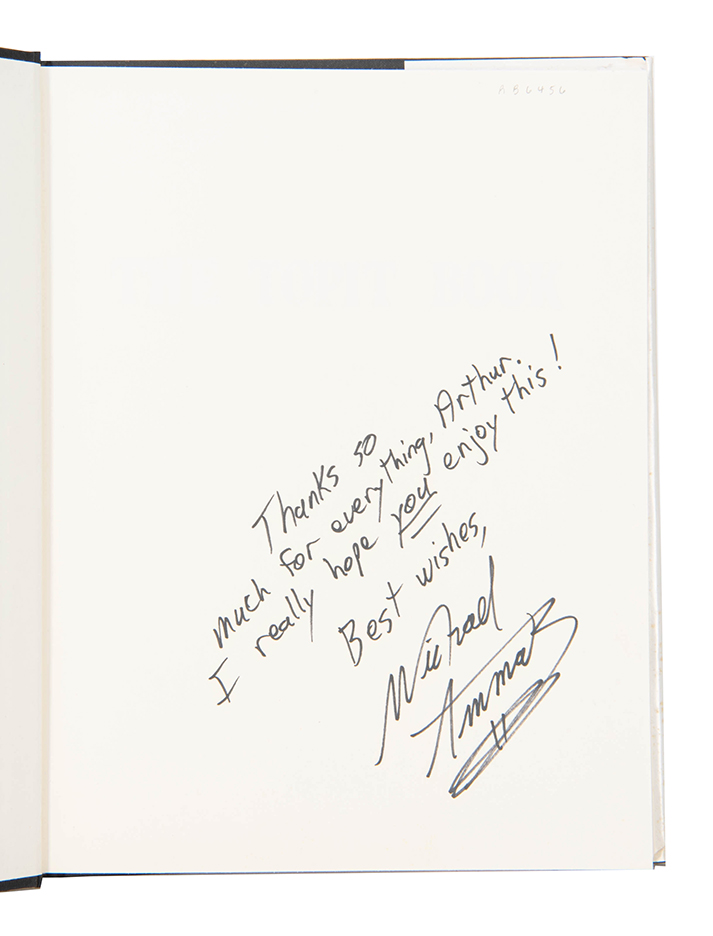 RB6456
Thanks so
much for everything, Arthur.
I really hope you enjoy this!
Best wishes,
Michael
Ammar